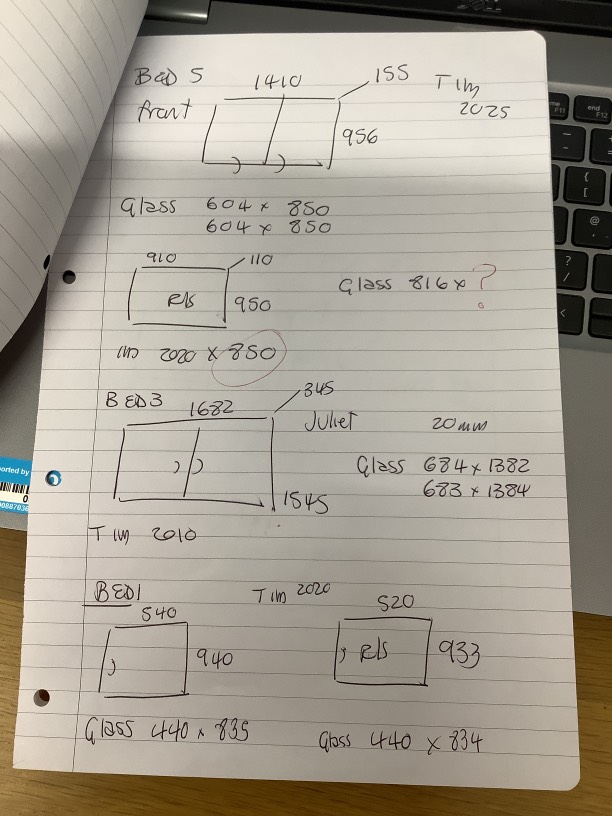 BED 5 1410 155 Tim
front 2025
956
Glass 604 x 850
604 x 850
910 110
R/S 950 Glass 816 x ?
Tim 2020 x 850
BED3 1682 345
Juliet 20mm
Glass 684 x 1382
683 x 1384
1545
Tim 2010
BED1 Tim 2020 520
540
940 R/S 933
Glass 440 x 835 Glass 440 x 834